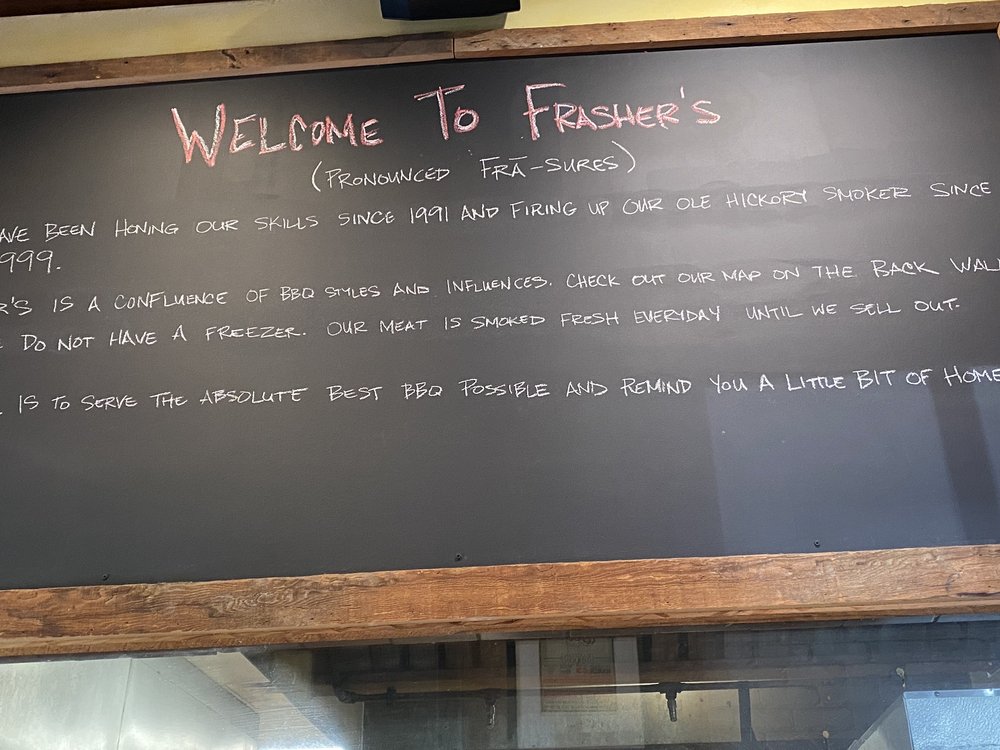 WELCOME TO FRASHER'S
(PRONOUNCED FRĀ-SURES)
AVE BEEN HONING OUR SKILLS SINCE 1991 AND FIRING UP OUR OLE HICKORY SMOKER SINCE
999.
R'S IS A CONFLUENCE OF BBQ STYLES AND INFLUENCES. CHECK OUT OUR MAP ON THE BACK WALL
DO NOT HAVE A FREEZER. OUR MEAT IS SMOKED FRESH EVERYDAY UNTIL WE SELL OUT.
IS TO SERVE THE ABSOLUTE BEST BBQ POSSIBLE AND REMIND YOU A LITTLE BIT OF HOME